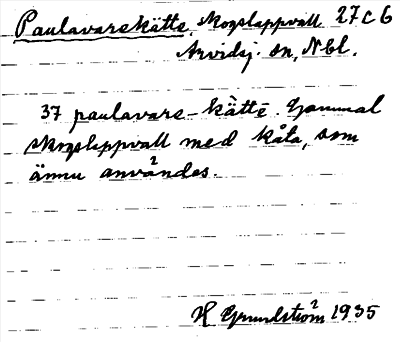 Paulavarekätte, skogslappvall 27 C 6
Arvidsj. sn, Nbl.
37 paulavare-kä̀ttē. Gammal
skogslappvall med kåta, som
ännu användes.
H Grundström 1935